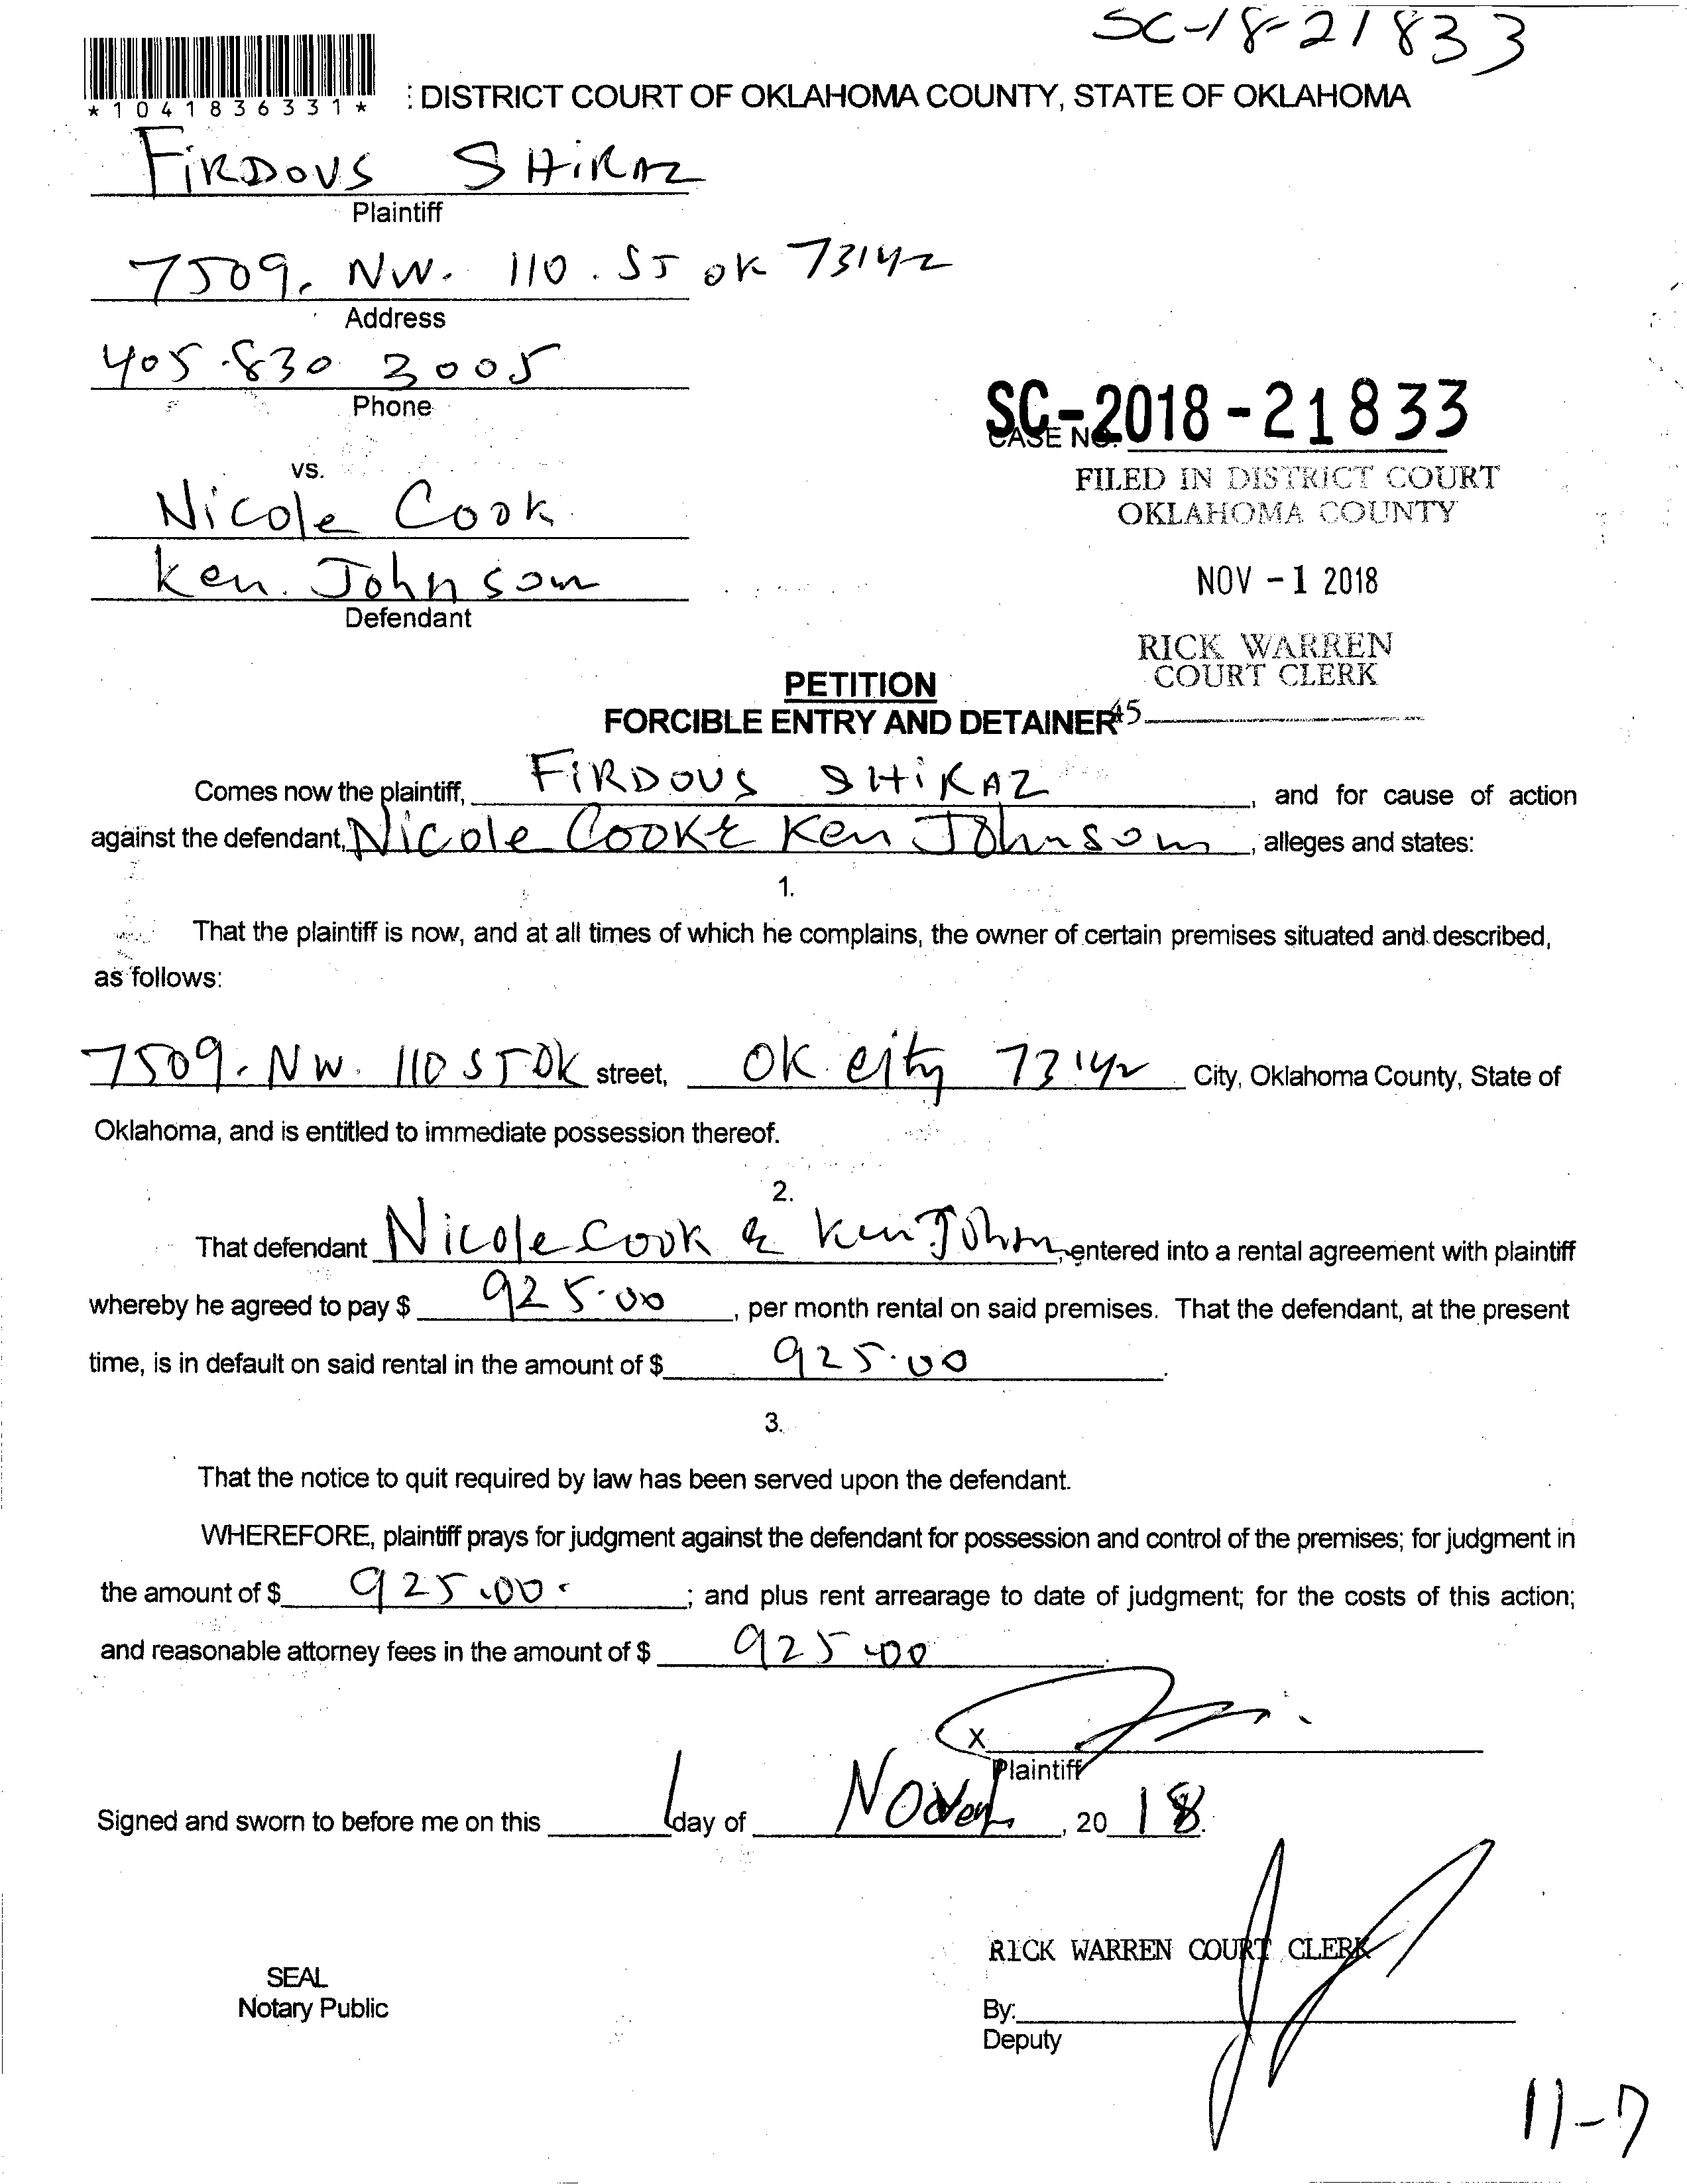 SC-18-21833
*1041836331*
: DISTRICT COURT OF OKLAHOMA COUNTY, STATE OF OKLAHOMA
FIRDOUS SHIRAZ
Plaintiff
7509. NW. 110. ST OK 73142
Address
405.830 3005
Phone
SC-2018-21833
CASE NO.
vs.
FILED IN DISTRICT COURT
OKLAHOMA COUNTY
Nicole Cook
NOV -1 2018
Ken. Johnson
Defendant
RICK WARREN
COURT CLERK
PETITION
FORCIBLE ENTRY AND DETAINER 45
Comes now the plaintiff, FIRDOUS SHIRAZ, and for cause of action
against the defendant, Nicole Cook & Ken Johnson, alleges and states:
1.
That the plaintiff is now, and at all times of which he complains, the owner of certain premises situated and described,
as follows:
7509. NW. 110 ST OK street, OK city 73142 City, Oklahoma County, State of
Oklahoma, and is entitled to immediate possession thereof.
2.
That defendant Nicole Cook & Ken John, entered into a rental agreement with plaintiff
whereby he agreed to pay $ 925.00, per month rental on said premises. That the defendant, at the present
time, is in default on said rental in the amount of $ 925.00.
3.
That the notice to quit required by law has been served upon the defendant.
WHEREFORE, plaintiff prays for judgment against the defendant for possession and control of the premises; for judgment in
the amount of $ 925.00. ; and plus rent arrearage to date of judgment; for the costs of this action;
and reasonable attorney fees in the amount of $ 925.00.
X
Plaintiff
Signed and sworn to before me on this 1 day of , 20 18.
RICK WARREN COURT CLERK
SEAL
Notary Public
By:
Deputy
11-7